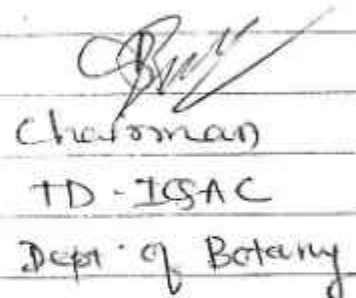 Chairman
TD-IQAC
Dept. of Botany